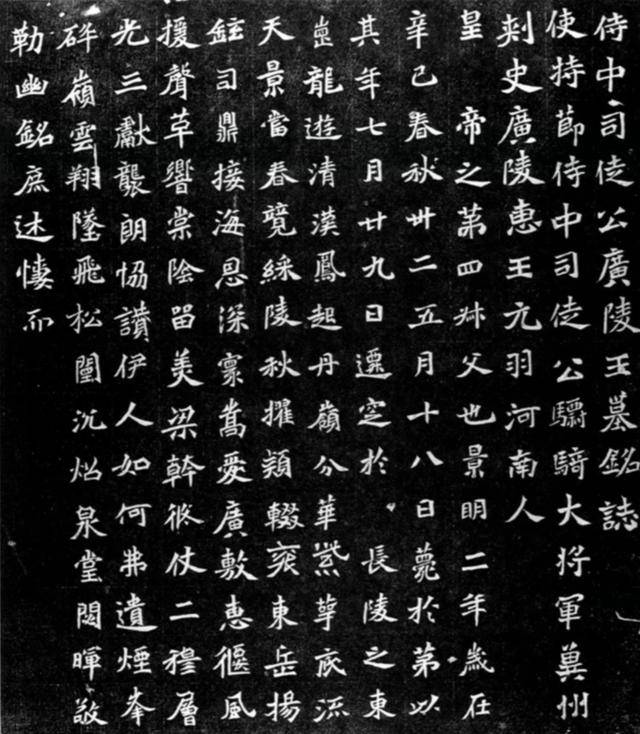 侍中司徒公廣陵王墓銘誌
使持節侍中司徒公驃騎大將軍冀州
刺史廣陵惠王元羽河南人
皇 帝之第四叔父也景明二年歲在
辛巳春秋卅二五月十八日薨於第以
其年七月廿九日遷窆於 長陵之東
崗龍遊清漢鳳起丹嶺分華紫萼底流
天景當春競綵陵秋擢穎輟袞東岳揚
鉉司鼎接海恩深寮嵩愛廣敷惠偃風
援聲草響棠陰留美梁幹仗二穆層
光三獻襲朗協讚伊人如何弗遺煙峯
碎嶺雲翔墜飛松闈沉焰泉堂閟暉敬
勒幽銘庶述悽而